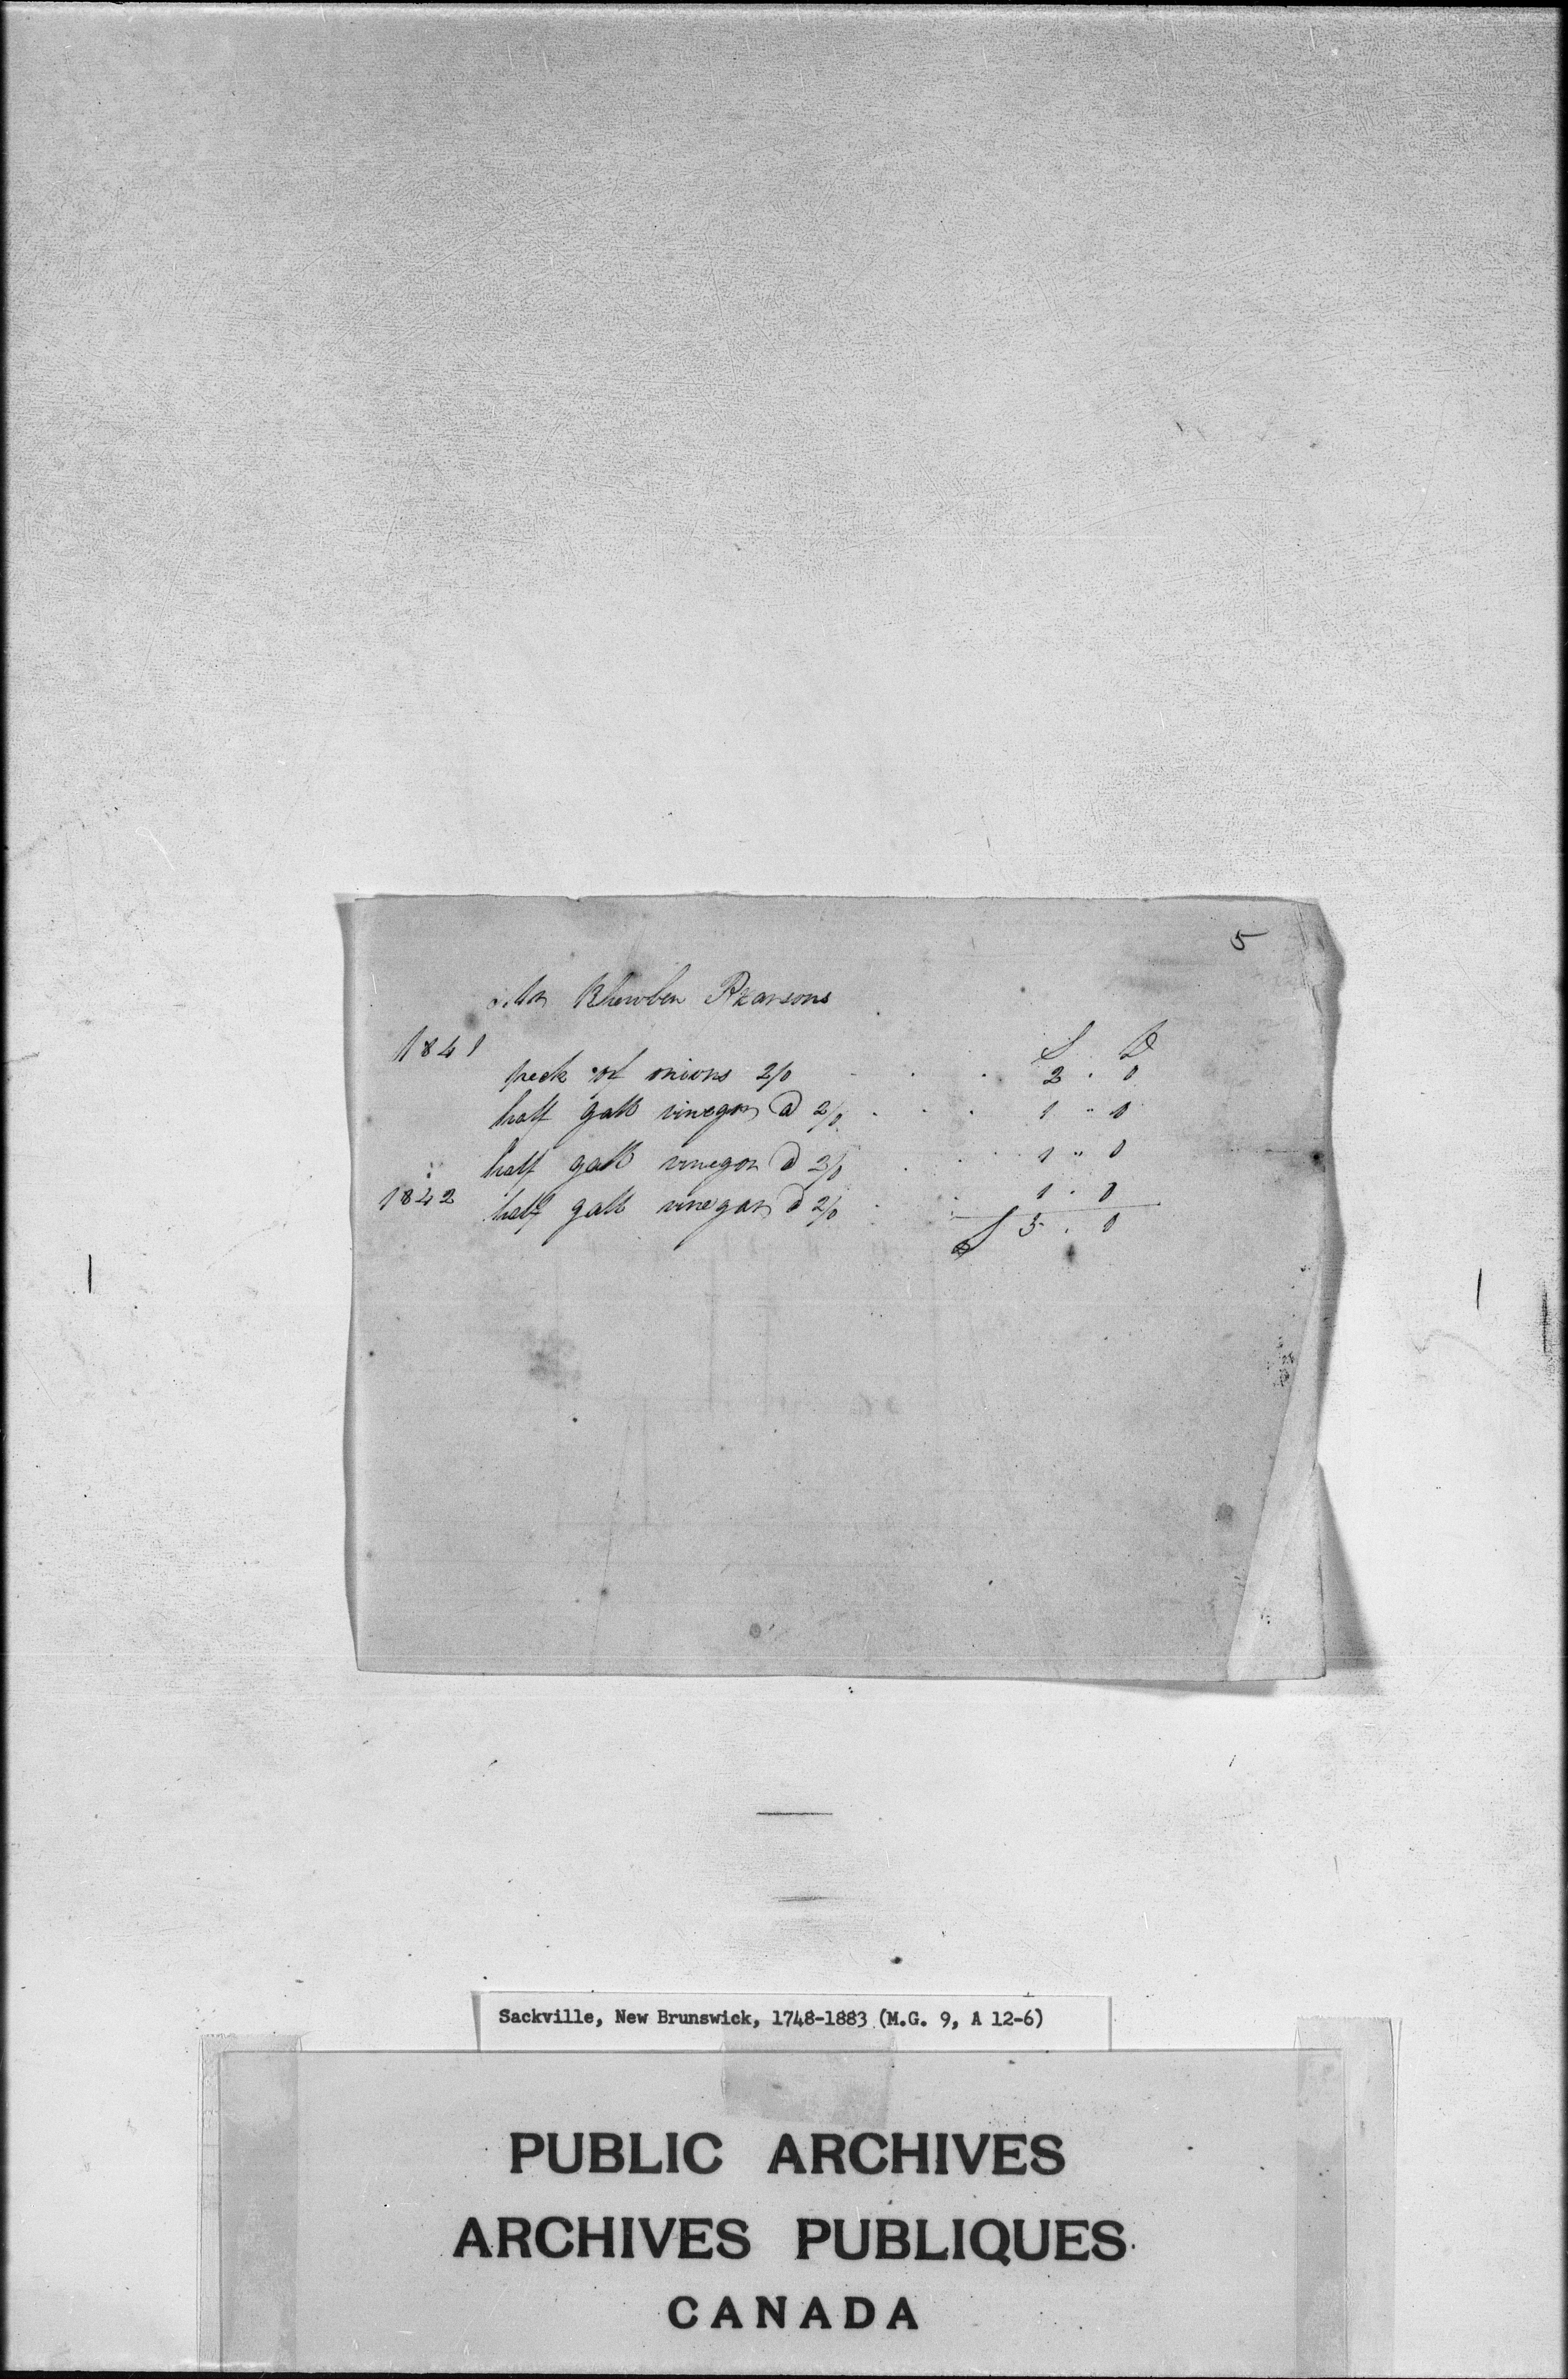 5
Mr Rhewben Pearsons
1841 S D
peck of onions 2/0 2 . 0
half gall vinegar @ 2/0 1 " 0
half gall vinegar @ 2/0 1 " 0
1842 half gall vinegar @ 2/0 1 . 0
5 . 0
Sackville, New Brunswick, 1748-1883 (M.G. 9, A 12-6)
PUBLIC ARCHIVES
ARCHIVES PUBLIQUES
CANADA